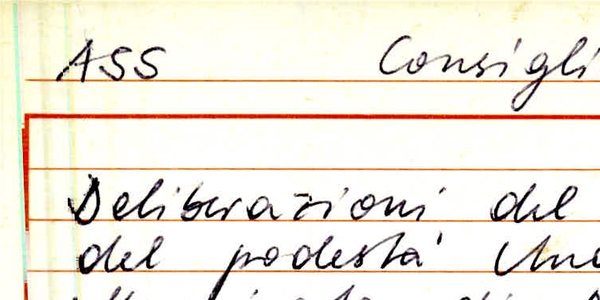 ASS Consigli
Deliberazioni del
del podestà